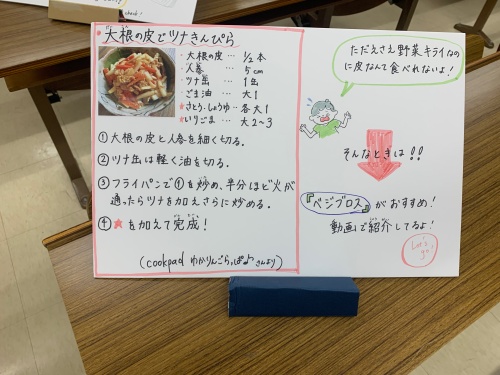 ・大根の皮とツナきんぴら
・大根の皮 … 1/2本
・人参 … 5cm
・ツナ缶 … 1缶
・ごま油 … 大1
★さとう・しょうゆ … 各大1
★いりごま … 大2〜3
①大根の皮と人参を細く切る。
②ツナ缶は軽く油を切る。
③フライパンで①を炒め、半分ほど火が
通ったらツナを加えさらに炒める。
④★を加えて完成!
(cookpad ゆかりんごらっぱよっさんより)
ただえさえ野菜キライなの
に皮なんて食べれないよ!
そんなときは!!
『ベジブロス』がおすすめ!
動画で紹介してるよ!
Let's
go
check!